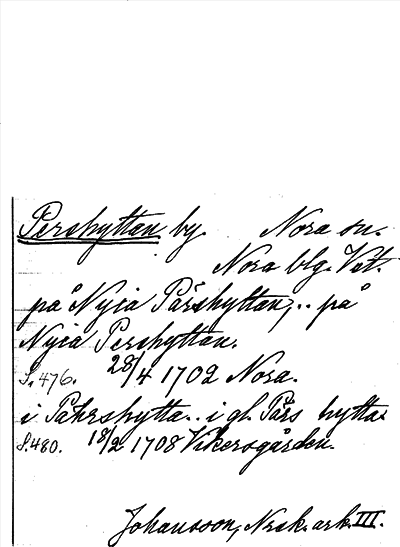 Pershyttan by. Nora sn.
Nora blg. Vst.
på Nyia Pårshyttan, .. på
Nyia Pershyttan.
S. 476. 28/4 1702 Nora.
i Påhrshytta .. i gl. Pårs hytta.
S. 480. 18/2 1708 Vikersgården.
Johansson, Nrsk. ark. III.